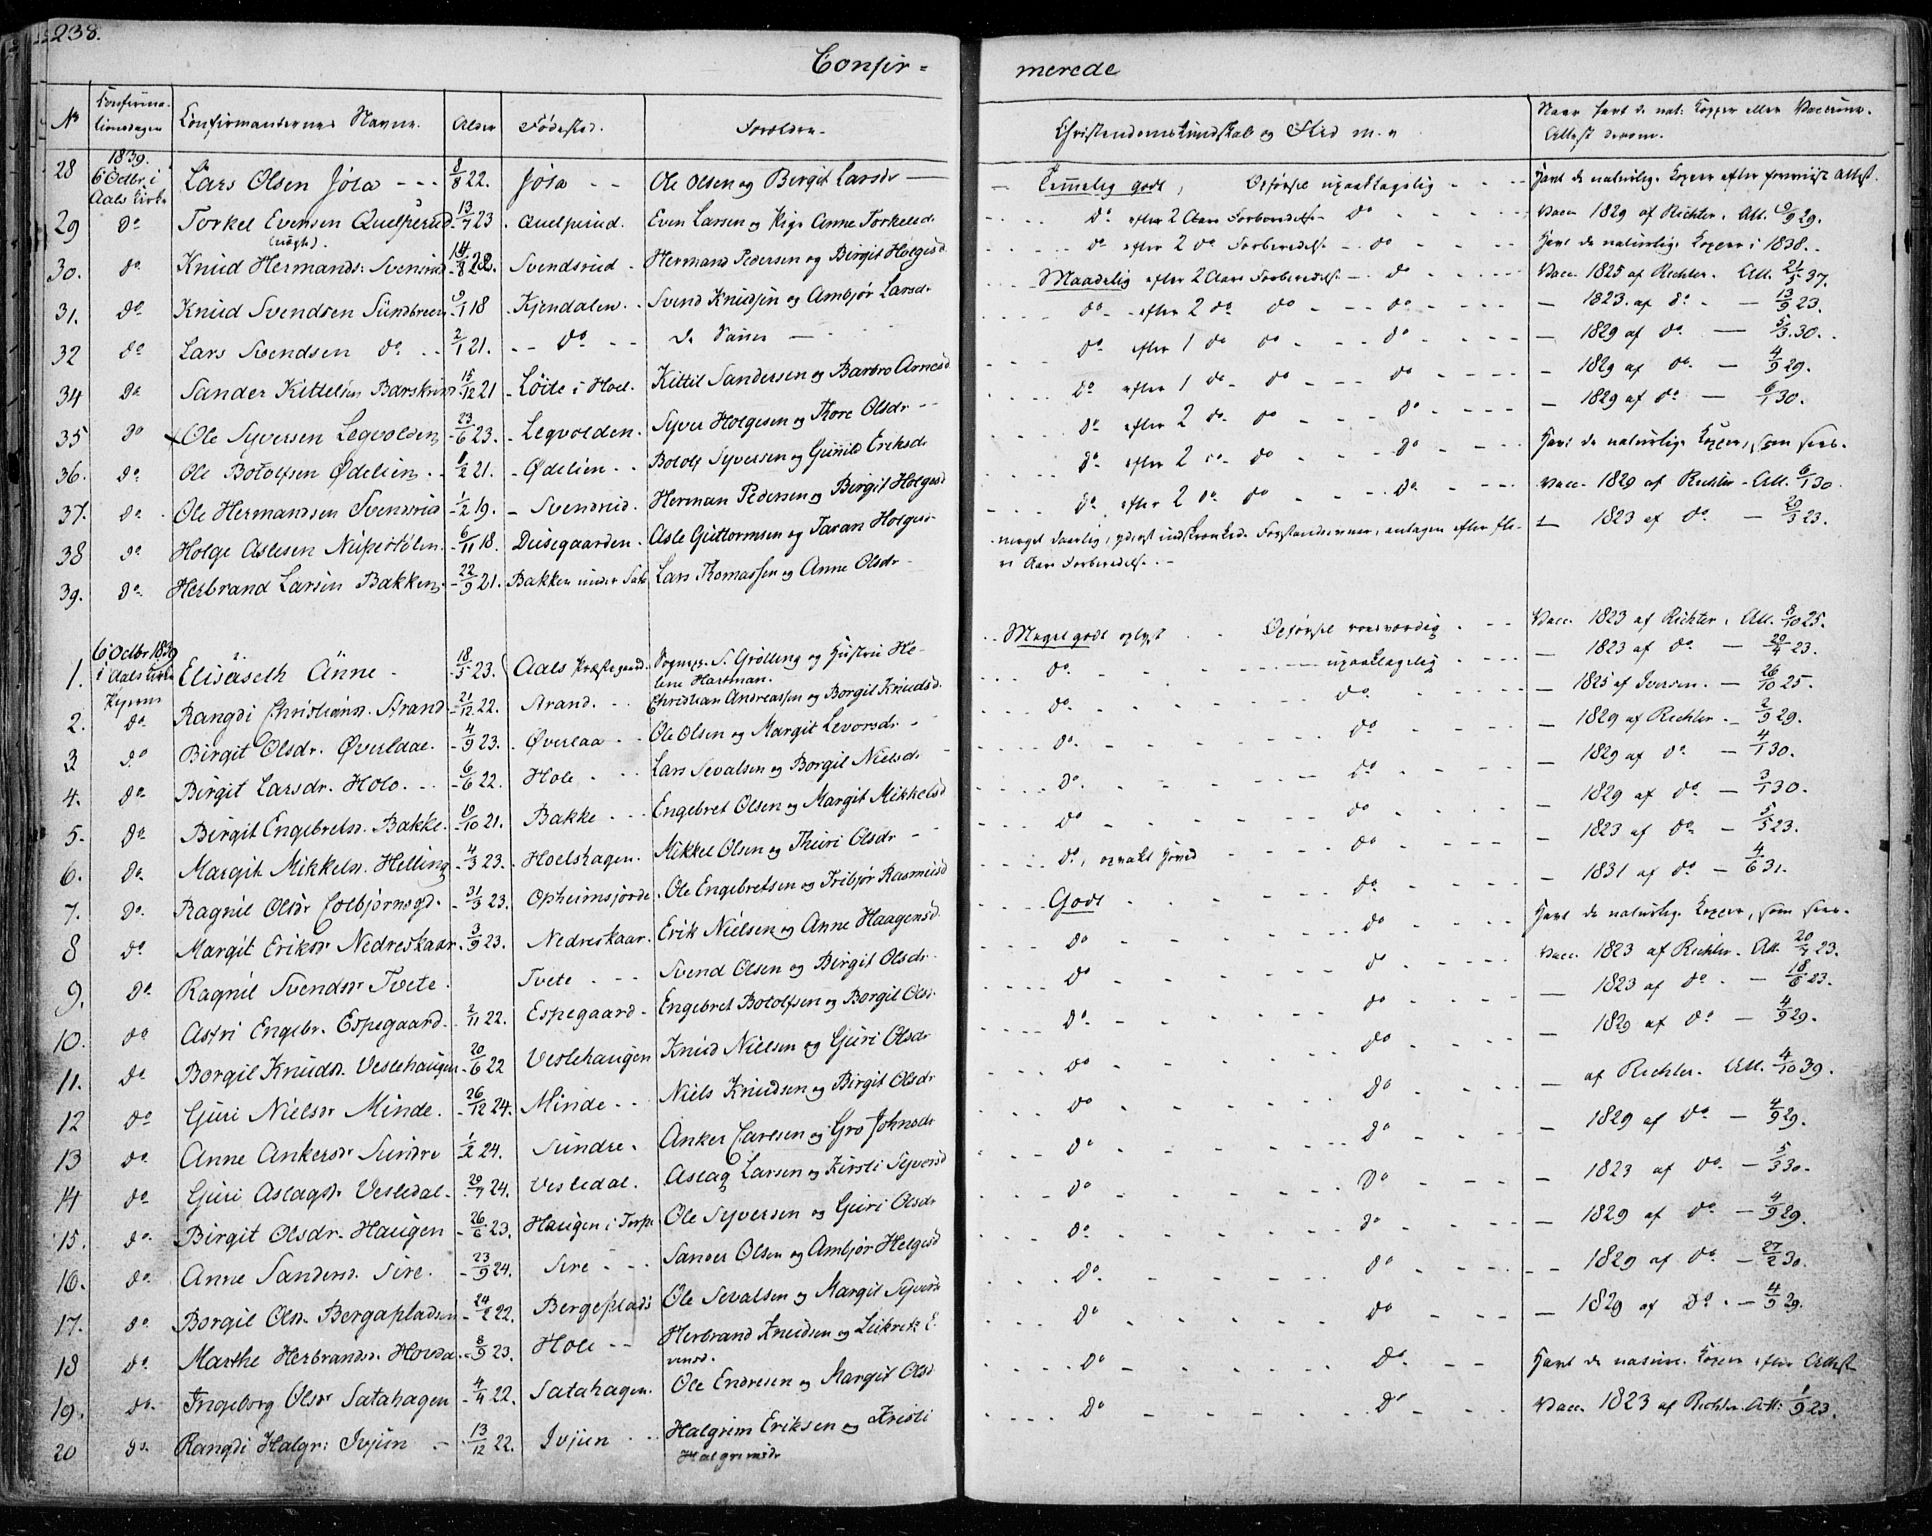 238.
Confir- merede
No Confirma-tionsdagen Confirmanternes Navne. Alder Fødested. Forældre. Christendomskundskab og Flid m. v. Naar havt de nat: Kopper eller Vaccine. Attest derom.
28 1839. 6 Octbr. i Aals Kirke Lars Olsen Jøla 8/8 22. Jøla Ole Olsen og Birgit Larsdr Temmelig godt, Opførsel upaaklagelig Havt de naturlige Kopper efter foreviist Attest.
29 do Torkel Evensen Quelprud 13/7 23 Quelprud. Even Larsen og Anne Torkelsd. do efter 2 Aars Forberedelse do Vacc. 1829 af Richter. Att. 9/9 29.
30. do Knud Hermands: Svensrud 14/8 22. Svendsrud Hermand Pedersen og Birgit Holgesd. do efter 2 do Forberedelse do Havt de naturlige Kopper i 1838.
31. do Knud Svendsen Sundbreen 9/1 18 Kjendalen. Svend Knudsen og Ambjør Larsdr Maadelig efter 2 Aars Forberedelse do Vacc. 1825 af Richter. Att. 21/5 37.
32 do Lars Svendsen do 2/1 21. do De Samme do efter 2 do do do 1823. af do 13/9 23.
34 do Sander Kittelsen Barskrud 15/12 21 Löite i Hoel. Kittil Sandersen og Barbro Arnesd do efter 1 do do do 1829 af do 5/3 30.
35 do Ole Syversen Legvolden 23/6 23. Legvolden. Syver Holgesen og Thore Olsdr do efter 1 do do do 1829 af do 4/9 29.
36. do Ole Botolfsen Ødelien 1/2 21. Ødelien Botolf Syversen og Gunild Eriksdr do efter 2 do do do 1829 af do 6/1 30.
37. do Ole Hermandsen Svendsrud 1/2 19. Svendrud. Herman Pedersen og Birgit Holgesd do efter 2 do do do Havt de naturlige Kopper, som sees.
38 do Holge Aslesen Nupestølen 6/11 18. Deisegaarden. Asle Guttormsen og Taran Holgesdr do efter 2 do do do Vacc. 1829 af Richter. Att. 6/1 30.
39. do Herbrand Larsen Bakken 22/9 21. Bakken under Sata Lars Thomassen og Anne Olsdr meget daarlig, yderst indskrænkede Forstandsevner, antagen efter fle-
re Aars Forberedelse. 1823 af do 20/3 23.
1. 6 Octbr 1839 i Aals Kirke Elisabeth Anne 18/5 23. Aals Præstegaard Sognepr. S. Grølling og Hustru He-
lene Hartman. Meget godt oplyst Opførsel roesværdig Vacc. 1823 af Richter. Att. 8/10 25.
2. do Rangdi Christiansd. Strand 21/12 22. Strand. Christian Andreassen og Borgil Knudsd. do upaaklagelig 1823 af do 20/4 23.
3 do Birgit Olsdr. Øverlaae. 4/9 23. Øverlaa Ole Olsen og Margit Levorsdr do do 1825 af Iversen. 26/10 25.
4. do Birgit Larsdr. Holo. 6/6 22. Hole Lars Sevalsen og Borgil Nielsd. do do 1829 af Richter. 2/9 29.
5. do Birgit Engebretsd. Bakke. 19/10 21. Bakke Engebret Olsen og Margit Mikkelsd do do 1829 af do 4/1 30.
6. do Margit Mikkelsd. Helling 4/3 23. Hoelshagen. Mikkel Olsen og Thuri Olsdr do do 1829 af do 3/1 30.
7. do Ragnil Olsdr Colbjørnsgd. 31/3 23. Opheimsjorde Ole Engebretsen og Tribjør Rasmusd do, do 1823 af do 5/5 23.
8 do Margit Eriksdr Nedreskaar 3/9 23. Nedreskaar. Erik Nielsen og Anne Haagensd. Godt do 1831 af do 4/6 31.
9. do Ragnil Svendsdr Tvete. Tvete Svend Olsen og Birgit Olsdr. do do Havt de naturlige Kopper, som sees.
10. do Astri Engebr. Espegaard. 2/11 22. Espegaard Engebret Botolfsen og Borgil Olsd. do do Vacc. 1823 af Richter. Att. 20/4 23.
11. do Borgil Knudsd. Veslehaugen 20/6 22 Veslehaugen Knud Nielsen og Guri Olsdr do do 1823 af do 18/6 23.
12 do Guri Nielsdr Minde. 26/12 24. Minde Niels Knudsen og Birgit Olsdr do do 1829 af do 4/9 29.
13 do Anne Ankersdr Sundre 1/2 24. Sundre. Anker Carlsen og Gro Johnsdr do do af Richter. Att. 4/10 39.
14 do Guri Aslagsdr Vesledal. 20/7 24. Vesledal. Aslag Larsen og Kirsti Syversd do do 1829 af do 4/9 29.
15. do Birgit Olsdr. Haugen 26/6 23. Haugen i Torpe Ole Syversen og Guri Olsdr do do 1823 af do 5/3 30.
16. do Anne Sandersd. Sire. 23/9 24. Sire Sander Olsen og Ambjør Helgesd do do 1829 af do 4/9 29.
17. do Borgil Olsd. Bergapladsen 24/2 22. Bergeplads Ole Sevalsen og Margit Syversd do do 1829 af do 27/2 30.
18 do Marthe Herbrandsd. Hovda. 8/9 23. Hole Herbrand Knudsen og E-
vensd. do do 1829 af do 4/9 29.
19. do Ingeborg Olsdr Satahagen 4/4 22. Satahagen. Ole Endresen og Margit Olsd do do Havt de naturl. Kopper efter Attest
20 do Rangdi Halgr: Ivjun 13/12 22. Ivjun Halgrim Eriksen og Kristi
Halgrimsdr do do Vacc. 1823 af Richter. Att: 1/9 23.